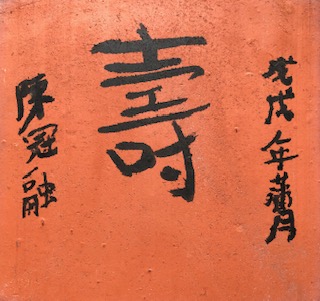 戊戌年月
壽
陳冠融